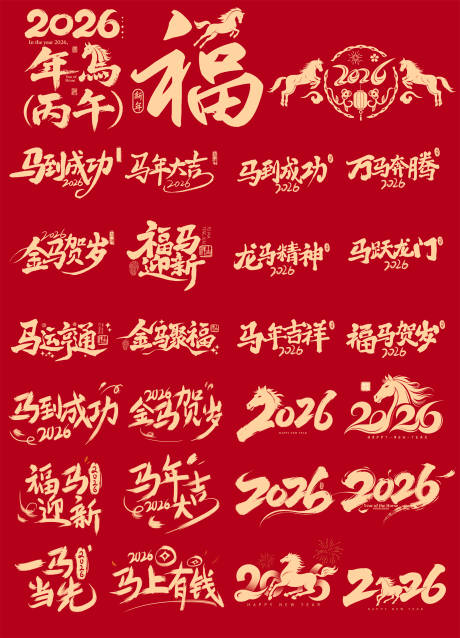 2026
In the year 2026,
年馬
(丙午)
福
新年
2026
马到成功
2026
马年大吉
2026
马到成功
2026
万马奔腾
2026
2026
金马贺岁
福马
迎新
龙马精神
2026
马跃龙门
2026
马运亨通
金马聚福
马年吉祥
2026
福马贺岁
2026
马到成功
2026
2026
金马贺岁
2026
HAPPY NEW YEAR
2026
HAPPY-NEW-YEAR
福马
迎新
2026
马年
大吉
2026
2026
2026
Year of the Horse
一马
当先
2026
2026
马上有钱
2026
HAPPY NEW YEAR
2026
HAPPY NEW YEAR